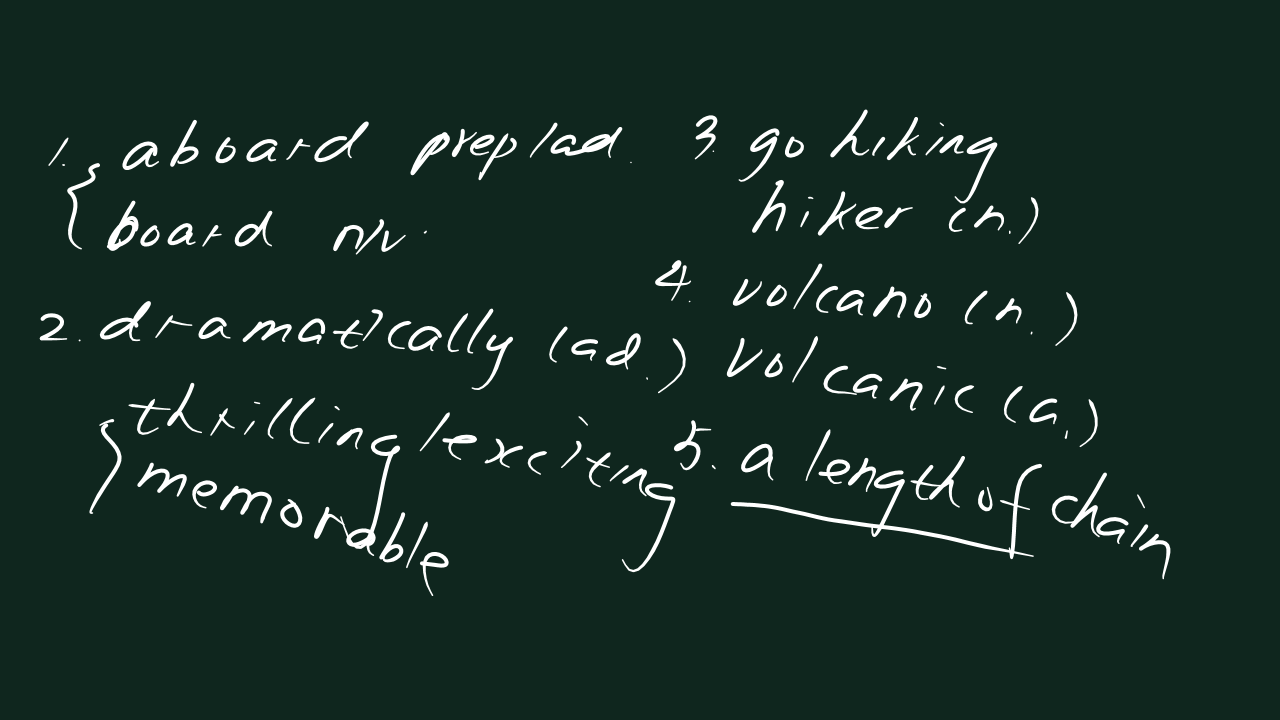 1. aboard prep/ad.
board n/v.
2. dramatically (ad.)
thrilling/exciting
memorable
3. go hiking
hiker (n.)
4. volcano (n.)
volcanic (a.)
5. a length of chain